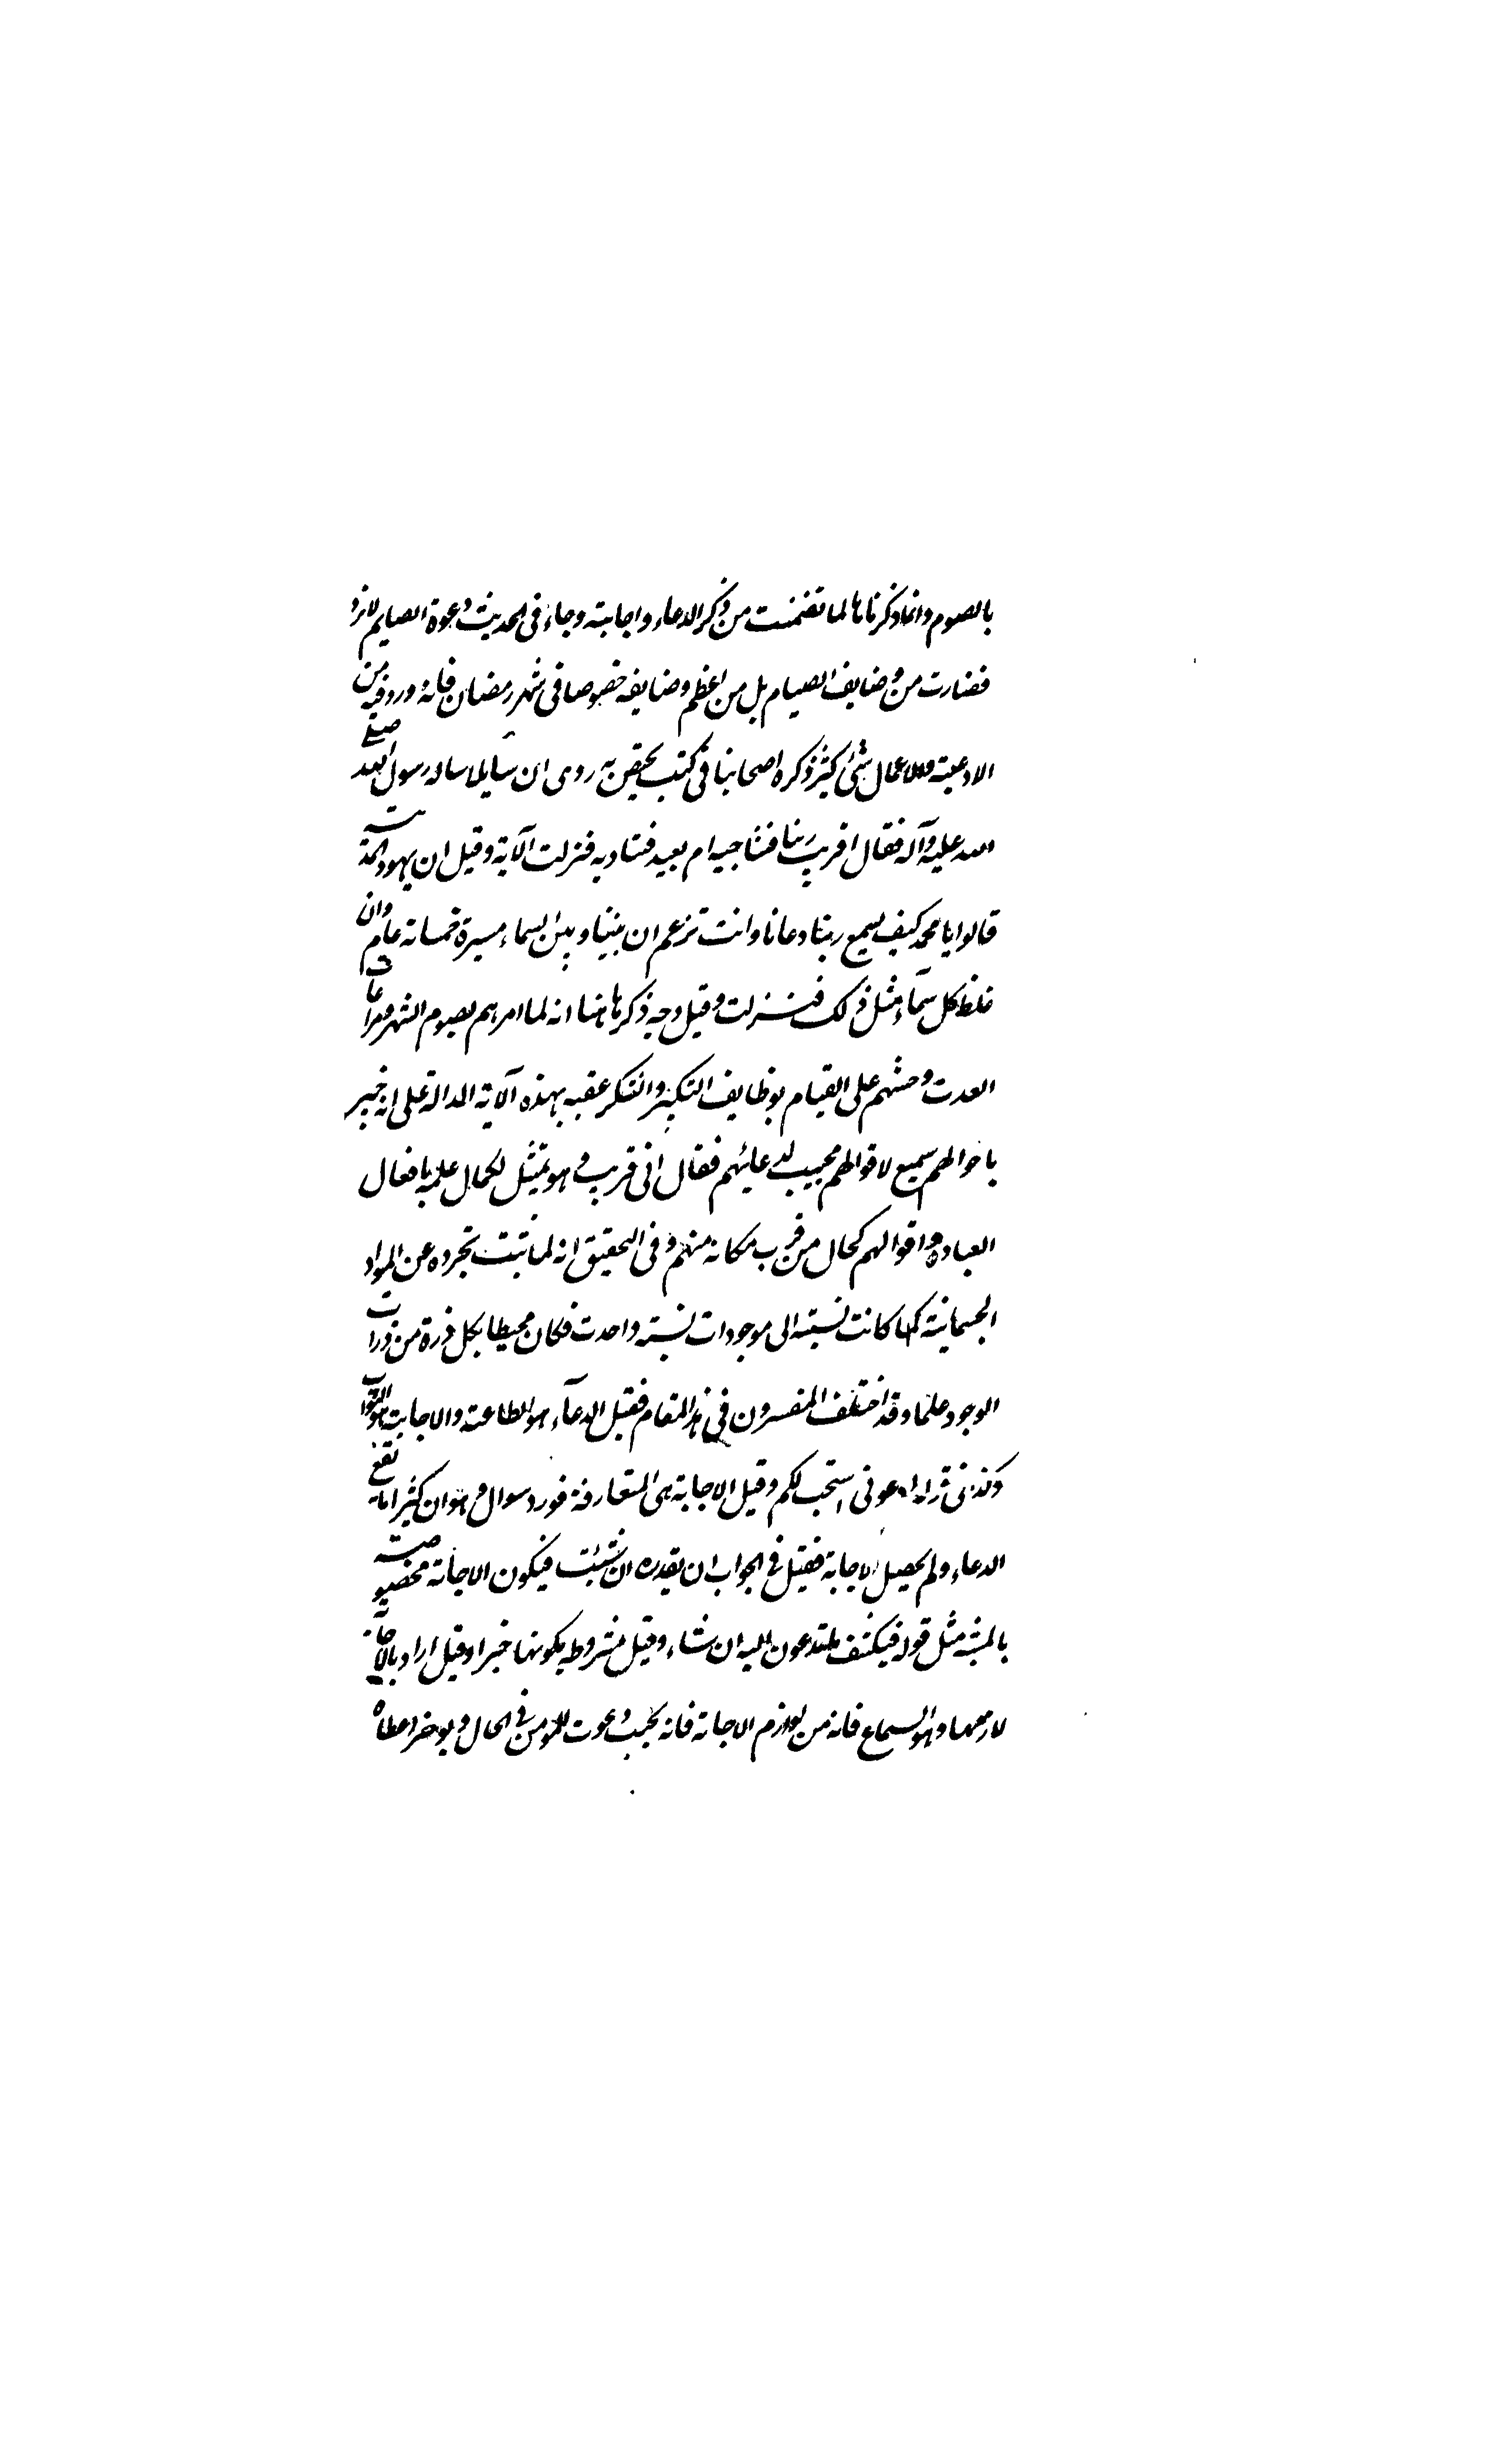 بالصوم وانما ذكرناها لما تضمنت من ذكر الدعاء واجابته وجاء في الحديث دعوة الصايم لا ترد
فضارت من وضايف الصيام بل من اعظم وضايفه خصوصا في شهر رمضان فانه ورد فيه من
الادعية والاعمال شئ كثير ذكره اصحابنا في كتب يختص به روى ان سايلا ساله رسول الله صلى
الله عليه وآله فقال اقريب ربنا فنناجيه ام بعيد فنناديه فنزلت الآية وقيل ان يهود المدينة
قالوا يا محمد كيف يسمع ربنا دعانا وانت تزعم ان بيننا وبين السماء مسيرة خمسمائة عام وان
غلظ كل سماء مثل ذلك فنزلت وقيل وجه ذكرها هنا انه لما امرهم بصوم الشهر ومراعاة
العدت وحثهم على القيام بوظايف التكبير والشكر عقبه بهذه الآية الدالة على انه خبير
باحوالهم سميع لاقوالهم مجيب لدعائهم فقال اني قريب وهو تمثيل لكمال علمه بافعال
العباد واقوالهم كحال من قرب مكانه منهم وفي التحقيق انه لما ثبت تجرده عن المواد
الجسمانية كلها كانت نسبته الى موجودات نسبة واحدت فكان محيطا بكل ذرة من ذرات
الوجود علما وقد اختلف المفسرون في هذا المقام فقيل الدعاء هو الطاعة والاجابت هو الثواب
وكذا في ادعوني استجب لكم وقيل الاجابة هي المتعارفة فورد سوال وهو ان كثيرا ما يقع
الدعاء ولم يحصل الاجابة فقيل في الجواب ان يقدره ان شئت فيكون الاجابة مخصوصة
بالمشية مثل قوله فيكشف ما تدعون اليه ان شاء وقيل مشروطه بكونها خيرا وقيل اراد بالاجابة
لازمها وهو السماع فانه من لوازم الاجابة فانه يجيب دعوت المؤمن في الحال ويوخر اعطاه